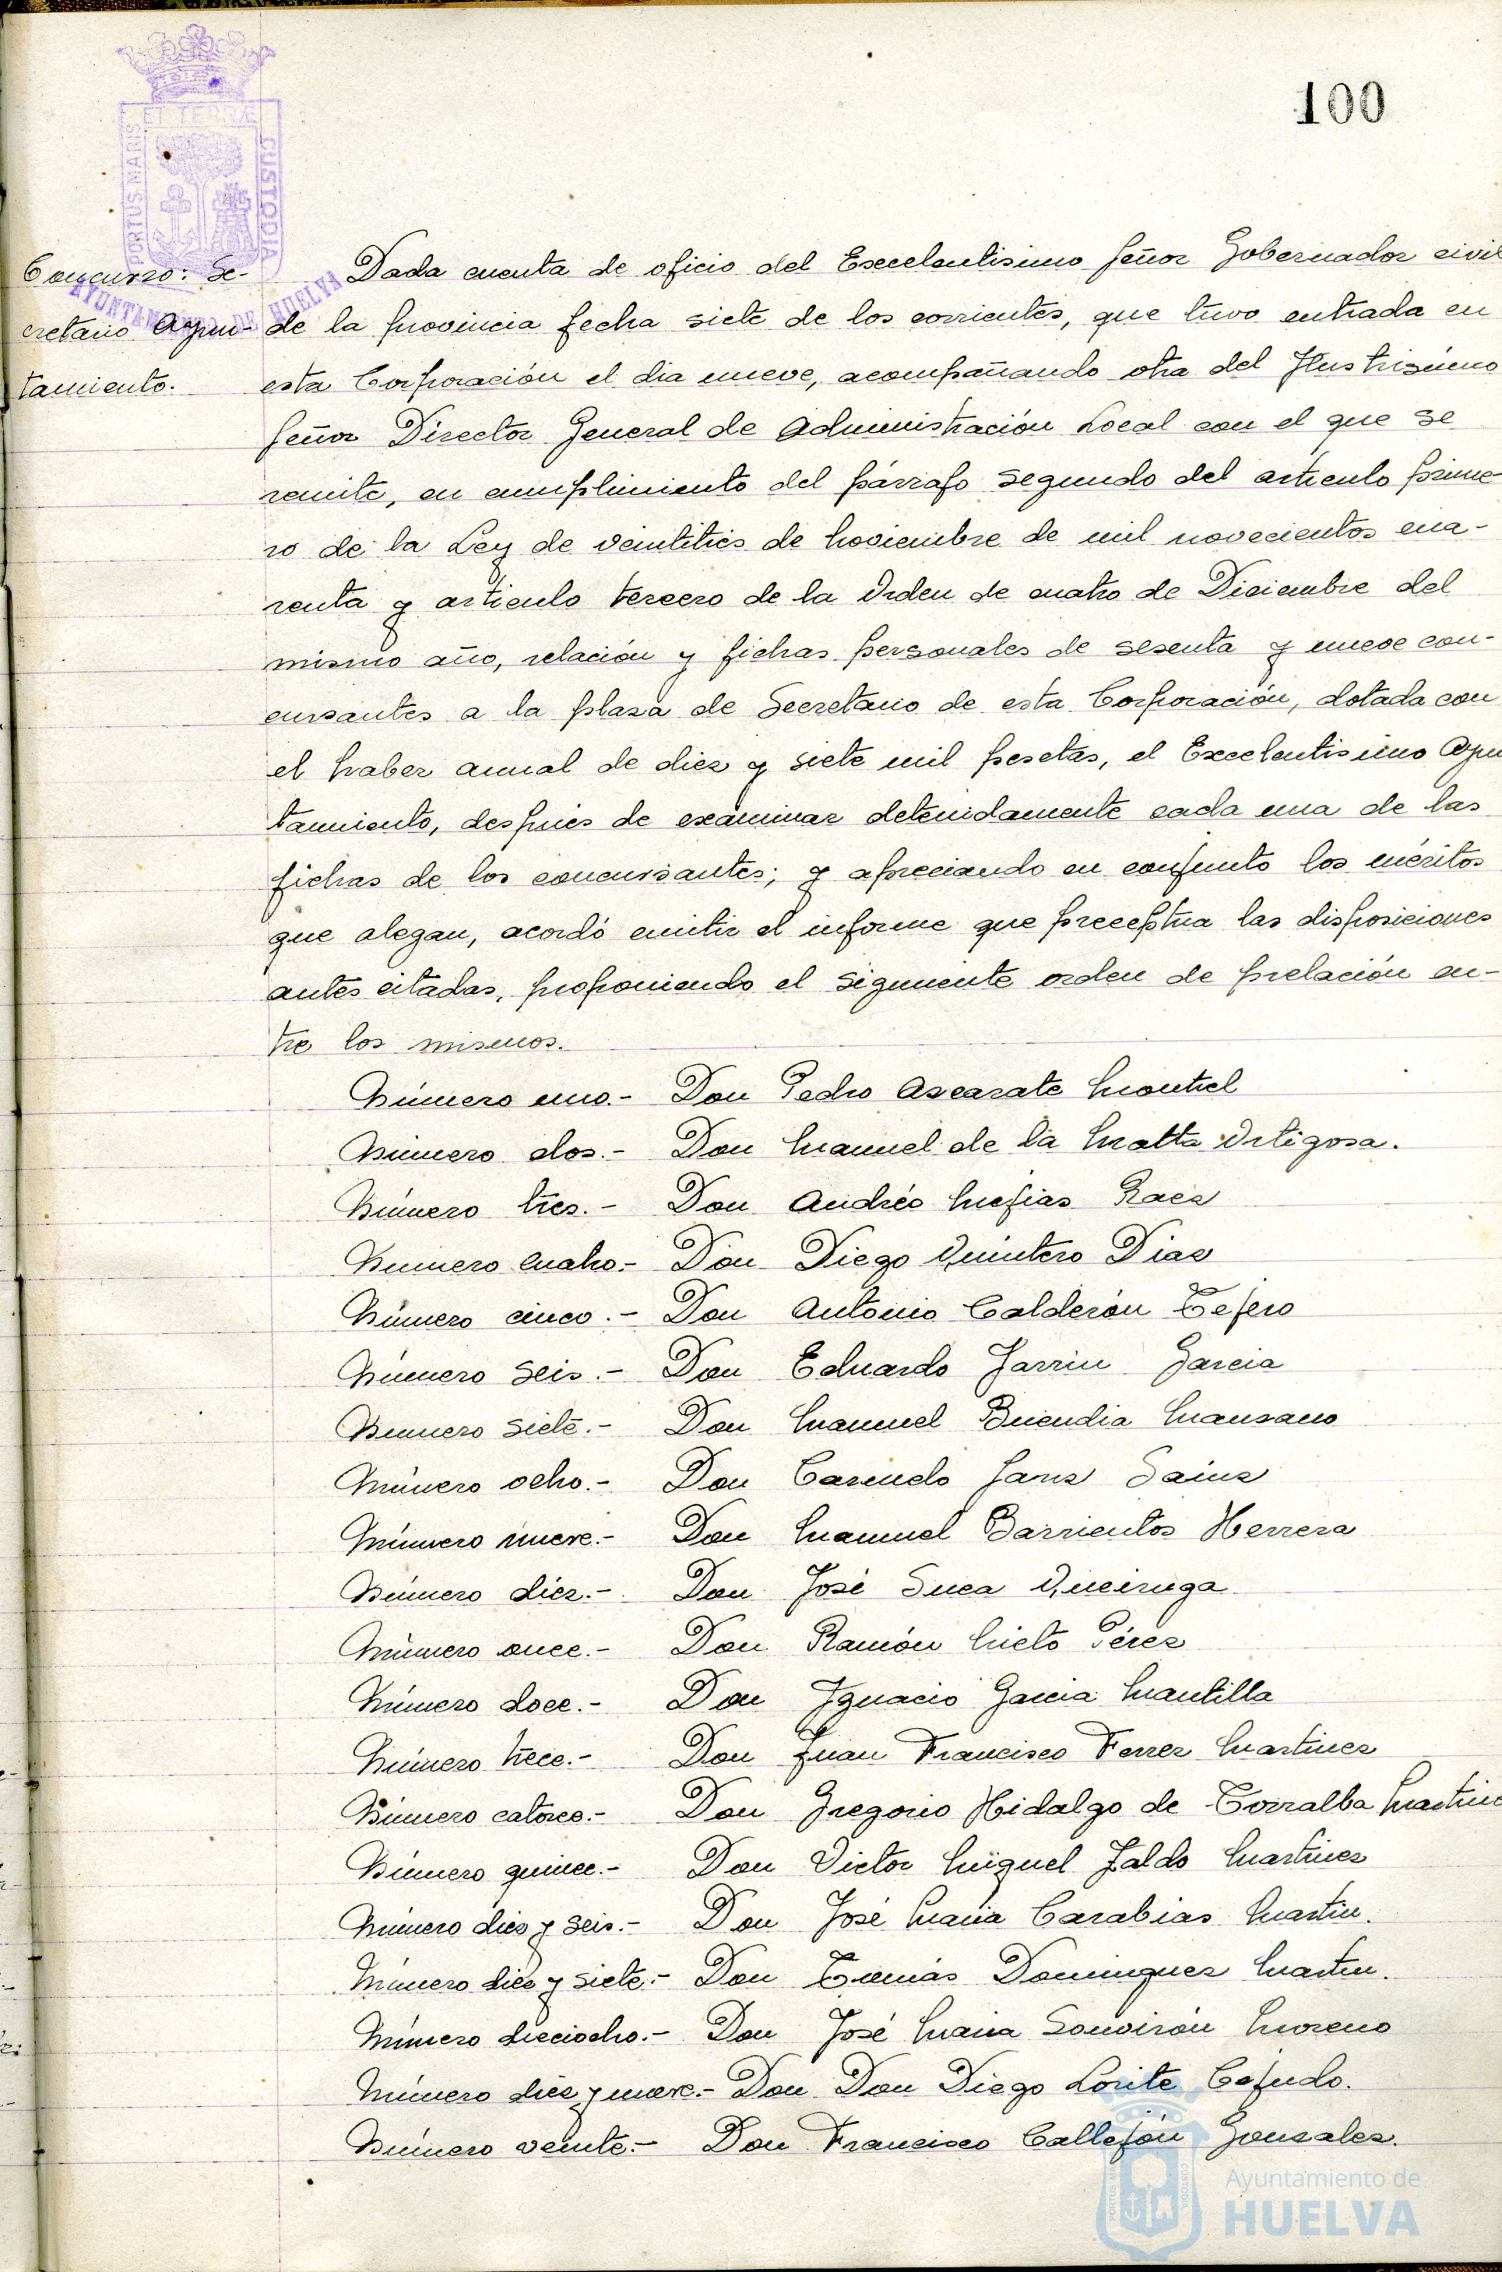 100
ET TERRÆ
PORTUS MARIS
CUSTODIA
AYUNTAMIENTO DE HUELVA
Concurso: Se-
cretario Ayun-
tamiento.
Dada cuenta de oficio del Excelentisimo Señor Gobernador civil
de la provincia fecha siete de los corrientes, que tuvo entrada en
esta Corporación el dia nueve, acompañando otra del Ilustrisimo
Señor Director General de Administración Local con el que se
remite, en cumplimiento del párrafo segundo del articulo prime-
ro de la Ley de veintitrés de Noviembre de mil novecientos cua-
renta y articulo tercero de la Orden de cuatro de Diciembre del
mismo año, relación y fichas personales de sesenta y nueve con-
cursantes a la plaza de Secretario de esta Corporación, dotada con
el haber anual de diez y siete mil pesetas, el Excelentisimo Ayun
tamiento, después de examinar detenidamente cada una de las
fichas de los concursantes; y apreciando en conjunto los méritos
que alegan, acordó emitir el informe que preceptua las disposiciones
antes citadas, proponiendo el siguiente orden de prelación en-
tre los mismos.
Número uno.- Don Pedro Azcarate Montiel
Número dos.- Don Manuel de la Matta Ortigosa.
Número tres.- Don Andrés Mejias Raez
Número cuatro.- Don Diego Quintero Diaz
Número cinco.- Don Antonio Calderón Tejero
Número seis.- Don Eduardo Jarrin Garcia
Número siete.- Don Manuel Buendia Manzano
Número ocho.- Don Carmelo Sanz Sainz
Número nueve.- Don Manuel Barrientos Herrera
Número diez.- Don José Queiruga
Número once.- Don Ramón Nieto Pérez
Número doce.- Don Ignacio Garcia Mantilla
Número trece.- Don Juan Francisco Ferrer Martinez
Número catorce.- Don Gregorio Hidalgo de Torralba Martine
Número quince.- Don Victor Miguel Jaldo Martinez
Número diez y seis.- Don José Maria Carabias Martin.
Número diez y siete.- Don Tomás Dominguez Martin.
Número dieciocho.- Don José Maria Souvirón Moreno
Número diez y nueve.- Don Don Diego Lorite Cejudo.
Número veinte.- Don Francisco Callejón Gonzalez.
Ayuntamiento de
HUELVA